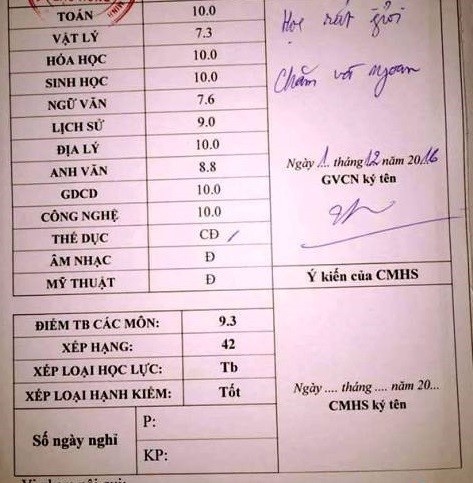 TOÁN 10.0
VẬT LÝ 7.3
HÓA HỌC 10.0
SINH HỌC 10.0
NGỮ VĂN 7.6
LỊCH SỬ 9.0
ĐỊA LÝ 10.0
ANH VĂN 8.8
GDCD 10.0
CÔNG NGHỆ 10.0
THỂ DỤC CĐ
ÂM NHẠC Đ
MỸ THUẬT Đ
Học rất giỏi
Chăm và ngoan
Ngày 1 tháng 12 năm 2016
GVCN ký tên
Ý kiến của CMHS
Ngày .... tháng .... năm 20...
CMHS ký tên
ĐIỂM TB CÁC MÔN: 9.3
XẾP HẠNG: 42
XẾP LOẠI HỌC LỰC: Tb
XẾP LOẠI HẠNH KIỂM: Tốt
Số ngày nghỉ
P:
KP: